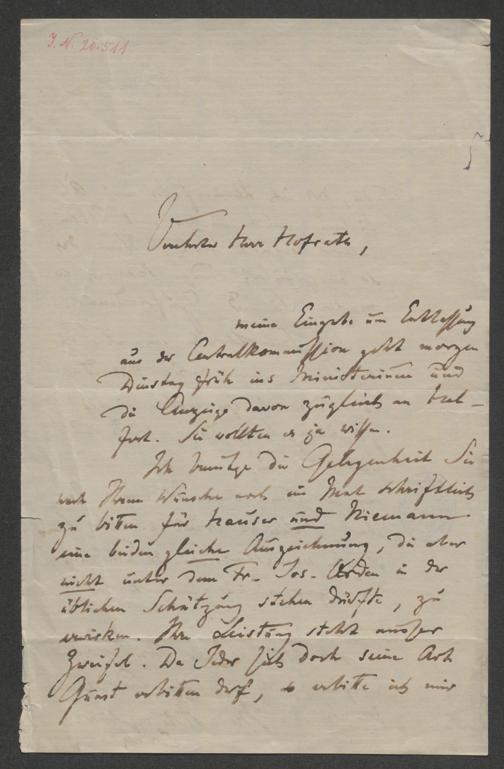 J. N. 20.511
Verehrter Herr Hofrath,
meine Eingabe um Entlassung
aus der Centralkommission geht morgen
Dinstag früh ins Ministerium und
die Anzeige davon zugleich an Hel-
fert. Sie wollten es ja wissen.
Ich benutze die Gelegenheit Sie
nach Ihrem Wunsche noch ein Mal schriftlich
zu bitten für Hauser und Niemann
eine beiden gleiche Auszeichnung, die aber
nicht unter dem Fr. Jos. Orden in der
üblichen Schätzung stehen dürfte, zu
erwirken. Ihre Leistung steht ausser
Zweifel. Da Jeder sich doch seine Art
Gunst erbitten darf, so erbitte ich mir